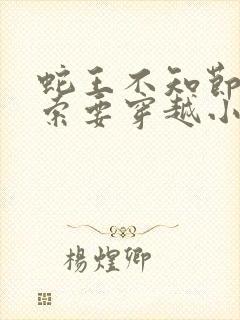 蛇王不知節
索要穿越小
楊煌卿